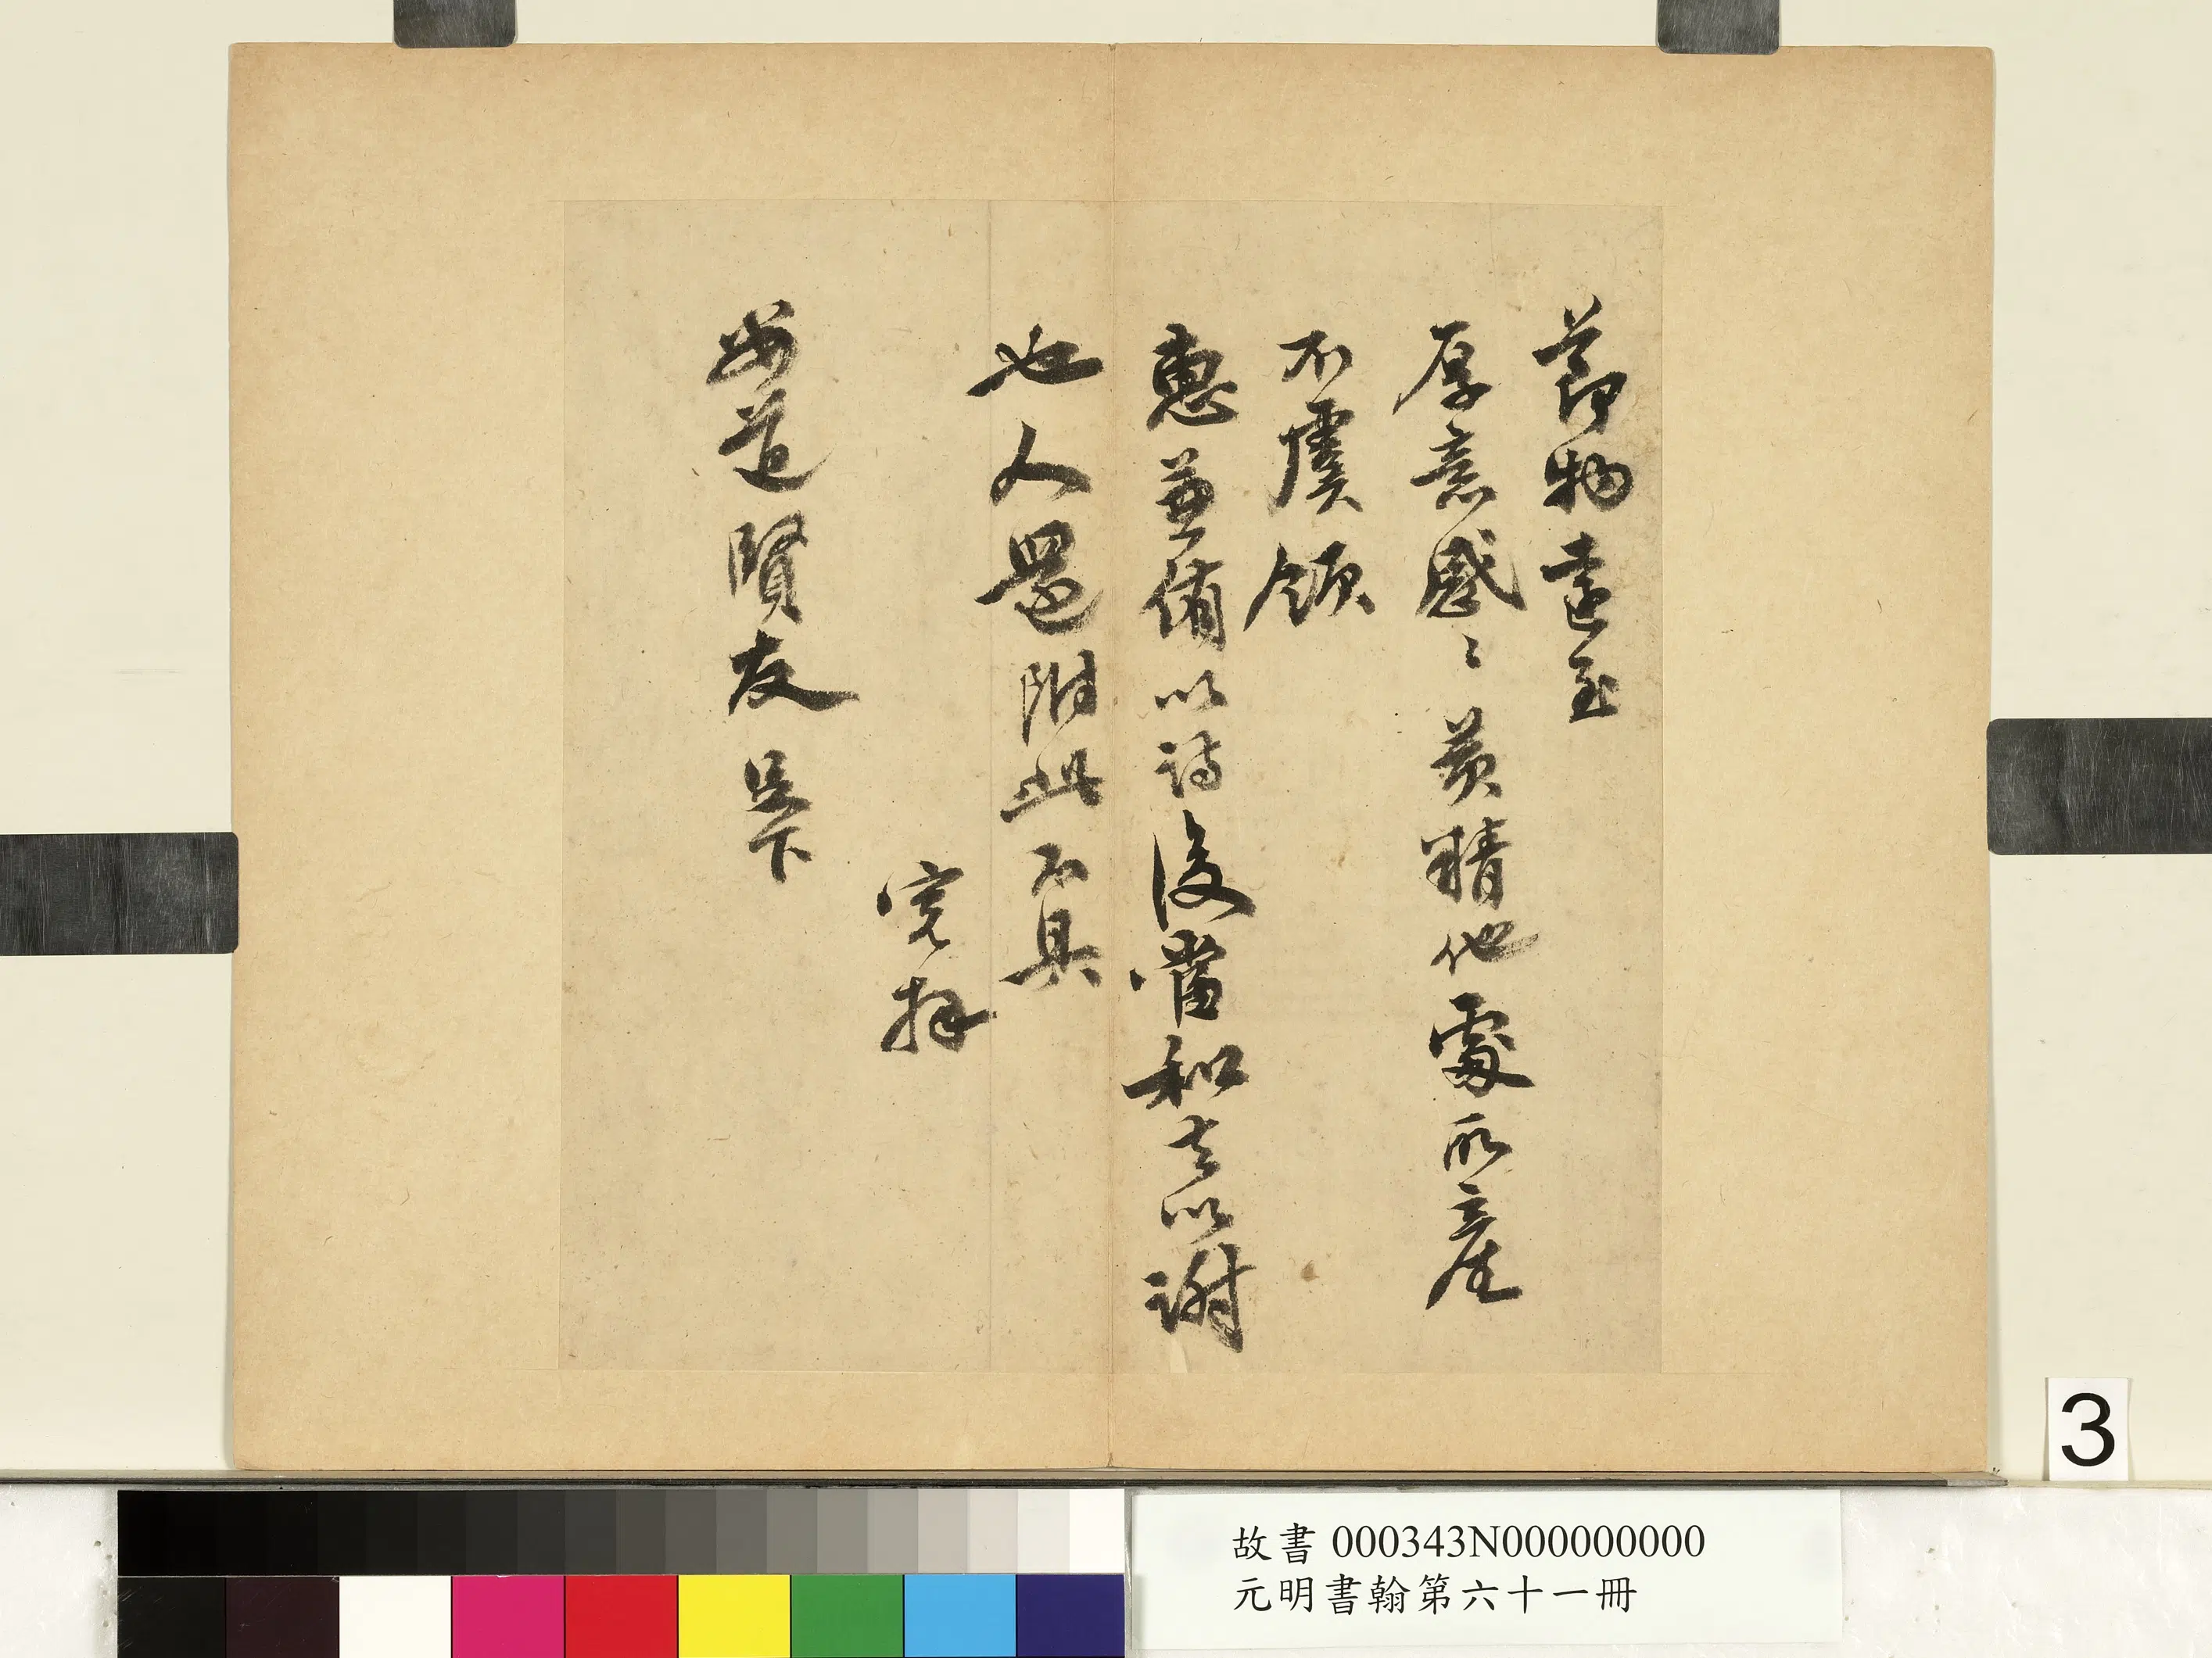 節物遠至
厚意感〻羨精他處所產
不虞領
惠並侑以詩後當和去以謝
也人還附此不具
完拜
安道賢友足下
3
故書 000343N000000000
元明書翰第六十一冊